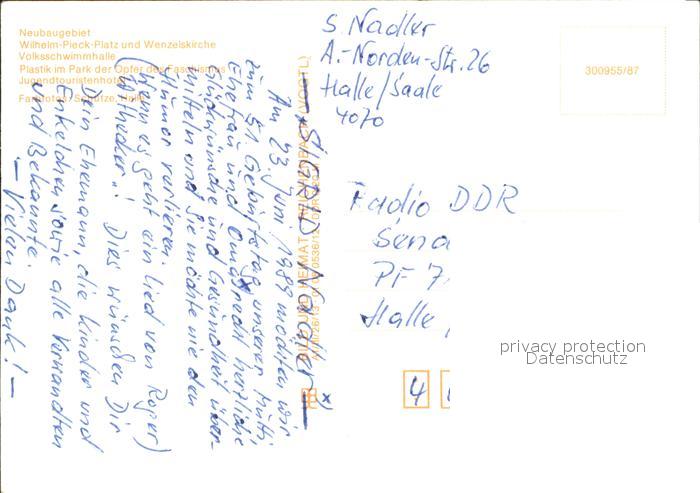 Neubaugebiet
Wilhelm-Pieck-Platz und Wenzelskirche
Volksschwimmhalle
Plastik im Park der Opfer des Faschismus
Jugendtouristenhotel
S. Nadler
A.-Norden-Str. 26
Halle/Saale
4070
300955/87
Radio DDR
Send
PF 7
Halle,
4
privacy protection
Datenschutz
SIGRID Nadler x)
Am 23. Juni 1989 möchten wir
zum 51. Geburtstag unserer Mutti
Ehefrau und Oma recht herzliche
Glückwünsche und Gesundheit über-
mitteln und sie möchte nie den
Humor verlieren.
(Wenn es geht ein Lied von Roger)
Whittaker! Dies wünschen Dir
Dein Ehemann, die Kinder und
Enkelchen sowie alle Verwandten
und Bekannte.
– Vielen Dank! –